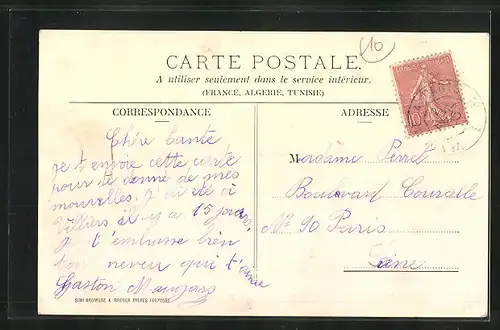 10
CARTE POSTALE.
A utiliser seulement dans le service intérieur.
(FRANCE, ALGERIE, TUNISIE)
CORRESPONDANCE
ADRESSE
Chère tante
je t'envoie cette carte
pour te donné de mes
nouvelles. J'ai été à
Villiers il y a 15 jours,
je t'embrasse bien
ton neveu qui t'aime
Gaston
Madame
Boulevard Courcelle
No 90 Paris
Seine
10